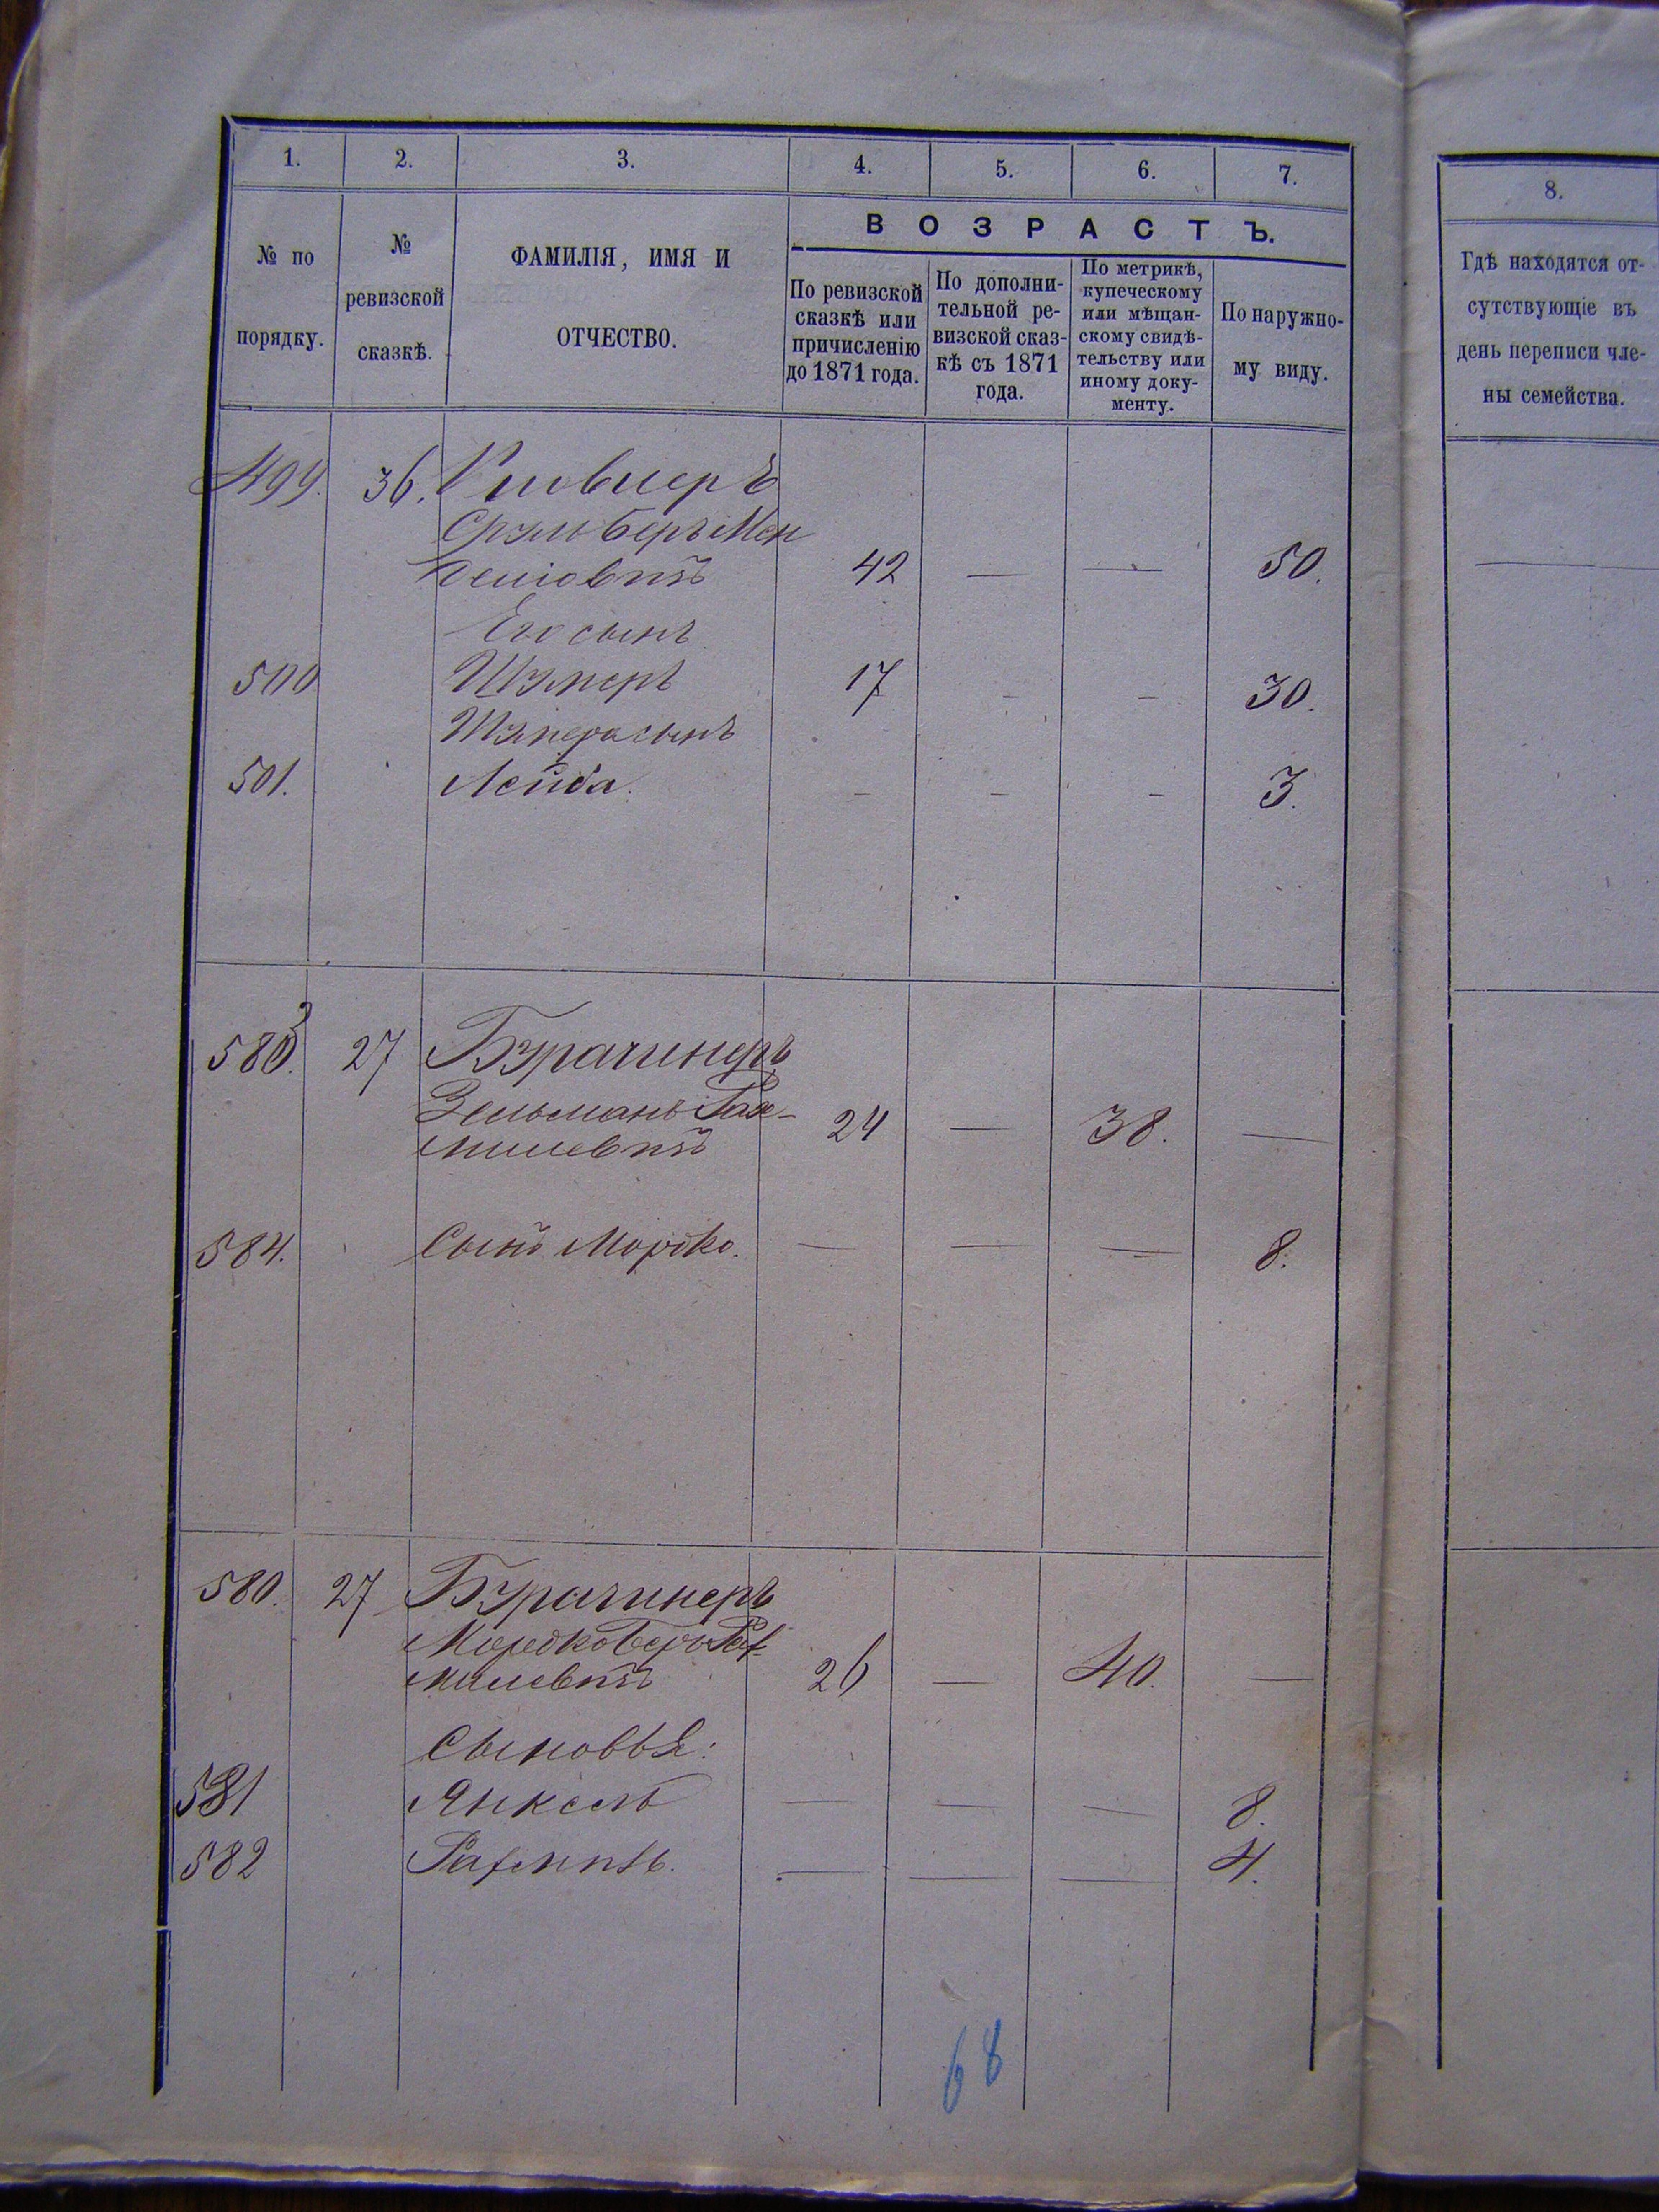 1. 2. 3. 4. 5. 6. 7.
№ по порядку.
№ ревизской сказкѣ.
ФАМИЛІЯ, ИМЯ И ОТЧЕСТВО.
ВОЗРАСТЪ.
По ревизской сказкѣ или причисленію до 1871 года.
По дополни-
тельной ре-
визской сказ-
кѣ съ 1871
года.
По метрикѣ,
купеческому
или мѣщан-
скому свидѣ-
тельству или
иному доку-
менту.
По наружно-
му виду.
499. 36.
Срульберъ Мен
делiовичъ 42 — — 50.
Его сынъ
500 Шмеръ 17 - - 30.
Шмера сынъ
501. Лейба. - - - 3.
583. 27 Бурачинеръ
Зельманъ Рах-
милевичъ 24 — 38. —
584. Сынъ Мордко. — — — 8.
580. 27 Бурачинеръ
Мордкоберъ Рах-
милевичъ 26 — 40. —
Сыновья:
581 Янкель — — — 8.
582 Рахмиль. — — — 4.
68
8.
Гдѣ находятся от-
сутствующіе въ
день переписи чле-
ны семейства.
—